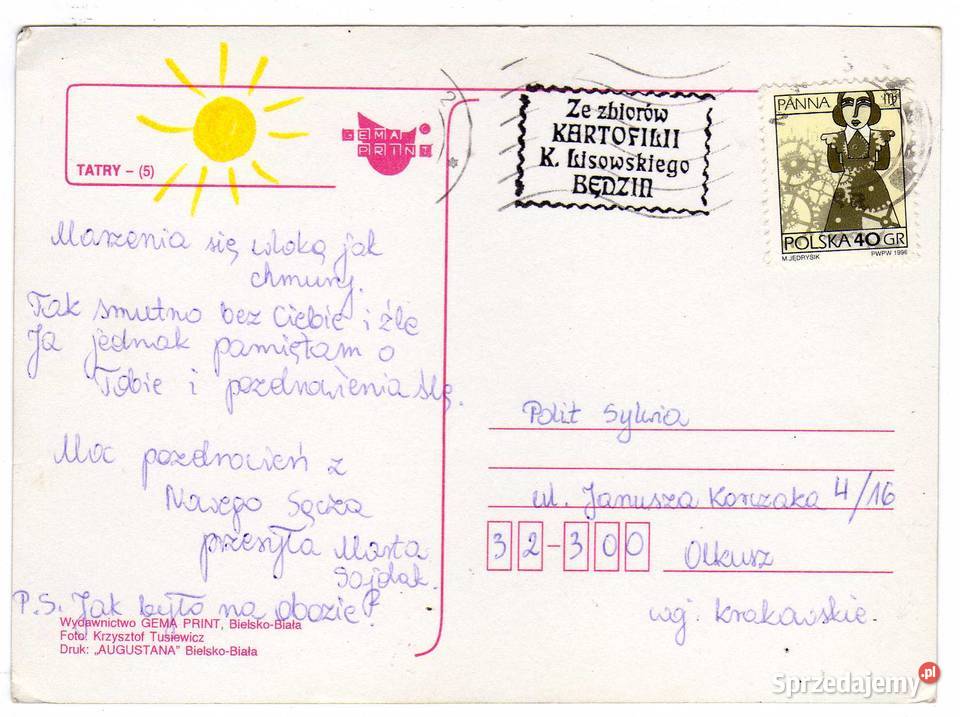 TATRY – (5)
GEMA ©
PRINT
Ze zbiorów
KARTOFILII
K. Lisowskiego
BĘDZIN
PANNA
POLSKA 40 GR
M. JĘDRYSIK PWPW 1996
Marzenia się wloką jak
chmury.
Tak smutno bez Ciebie i źle
Ja jednak pamiętam o
Tobie i pozdrowienia ślę.
Moc pozdrowień z
Nowego Sącza
przesyła Marta
Sojdak.
P.S. Jak było na obozie?
Wydawnictwo GEMA PRINT, Bielsko-Biała
Foto: Krzysztof Tusiewicz
Druk: „AUGUSTANA" Bielsko-Biała
Polit Sylwia
ul. Janusza Korczaka 4/16
32-300 Olkusz
woj. krakowskie.
Sprzedajemy.pl